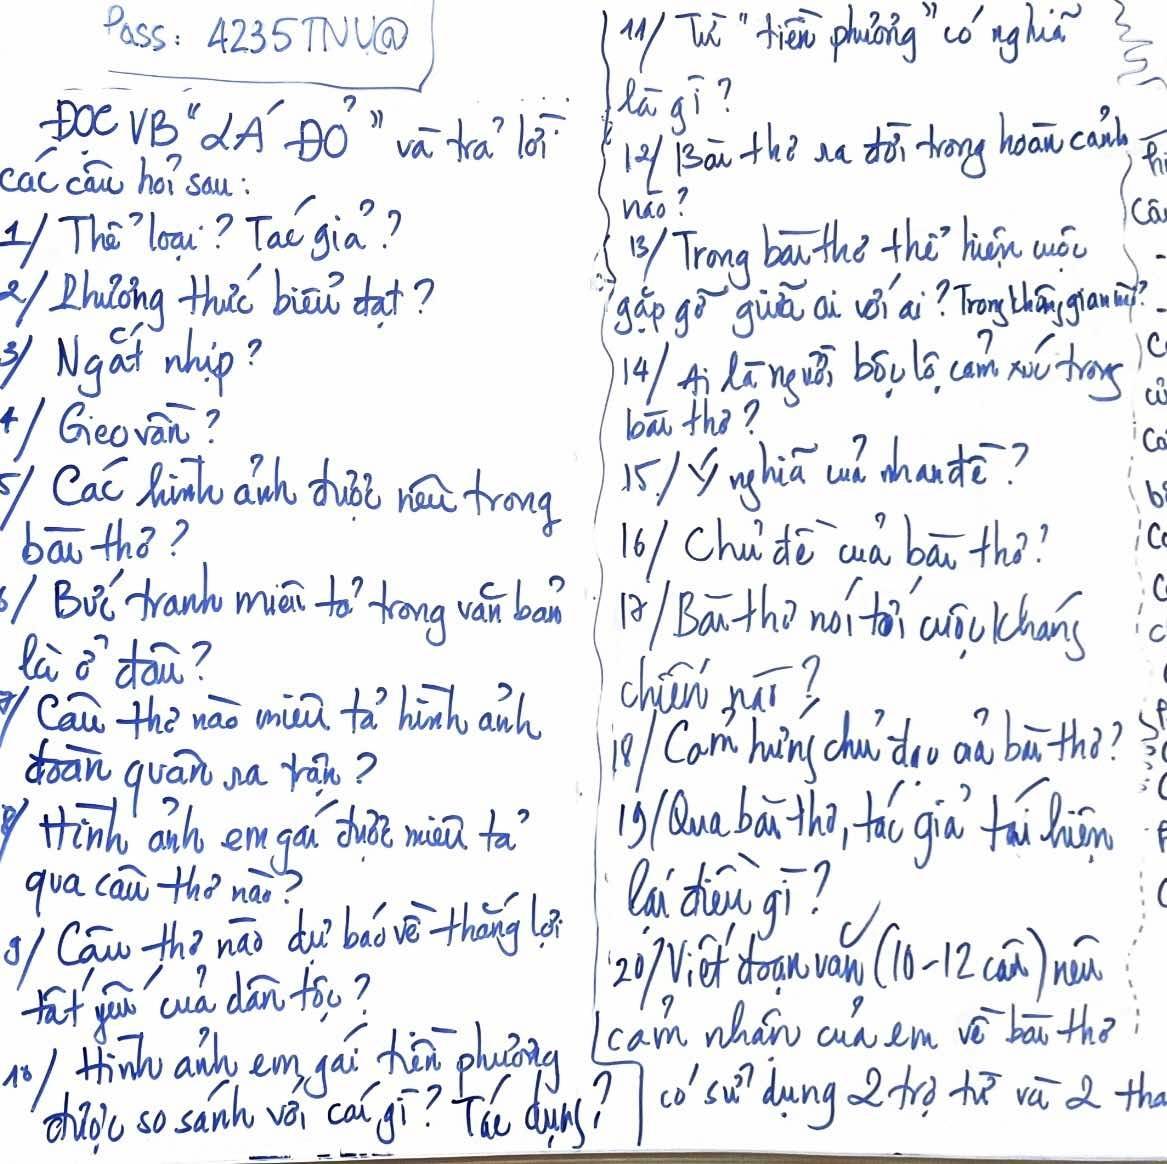 Pass: 4235TNU@
ĐỌC VB "LÁ ĐỎ" và trả lời
các câu hỏi sau:
1/ Thể loại? Tác giả?
2/ Phương thức biểu đạt?
3/ Ngắt nhịp?
4/ Gieo vần?
5/ Các hình ảnh được nêu trong
bài thơ?
6/ Bức tranh miêu tả trong văn bản
là ở đâu?
7/ Câu thơ nào miêu tả hình ảnh
đoàn quân ra trận?
8/ Hình ảnh em gái được miêu tả
qua câu thơ nào?
9/ Câu thơ nào dự báo về thắng lợi
tất yếu của dân tộc?
10/ Hình ảnh em gái tiền phương
được so sánh với cái gì? Tác dụng?
11/ Từ "tiền phương" có nghĩa
là gì?
12/ Bài thơ ra đời trong hoàn cảnh
nào?
13/ Trong bài thơ thể hiện cuộc
gặp gỡ giữa ai với ai? Trong không gian nào?
14/ Ai là người bộc lộ cảm xúc trong
bài thơ?
15/ Ý nghĩa của nhan đề?
16/ Chủ đề của bài thơ?
17/ Bài thơ nói tới cuộc kháng
chiến nào?
18/ Cảm hứng chủ đạo của bài thơ?
19/ Qua bài thơ, tác giả tái hiện
lại điều gì?
20/ Viết đoạn văn (10-12 câu) nêu
cảm nhận của em về bài thơ
có sử dụng 2 trợ từ và 2 tha